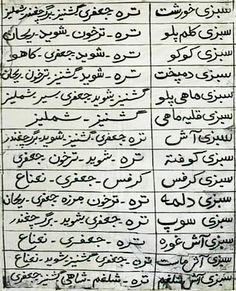 سبزی خورشت تره جعفری گشنیز برگ چغندر
سبزی کلم پلو تره - شوید - ترخون - ریحان
سبزی کوکو تره - جعفری - شوید - کاهو
سبزی دمپخت تره - جعفری گشنیز ترخون ریحان
سبزی ماهی پلو گشنیز شوید جعفری سیر شملیز
سبزی قلیه ماهی گشنیز - شملیز
سبزی آش تره جعفری گشنیز برگ چغندر
سبزی کوفته تره - شوید - ترخون - جعفری
سبزی کرفس کرفس - جعفری - نعناع
سبزی دلمه تره - ترخون مرزه جعفری - ریحان
سبزی سوپ تره جعفری شوید - برگ چغندر
سبزی آش غوره تره - جعفری - نعناع
سبزی آش تره - جعفری شوید گشنیز نعناع
سبزی آش شلغم تره - شلغم - شاهی گشنیز جعفری